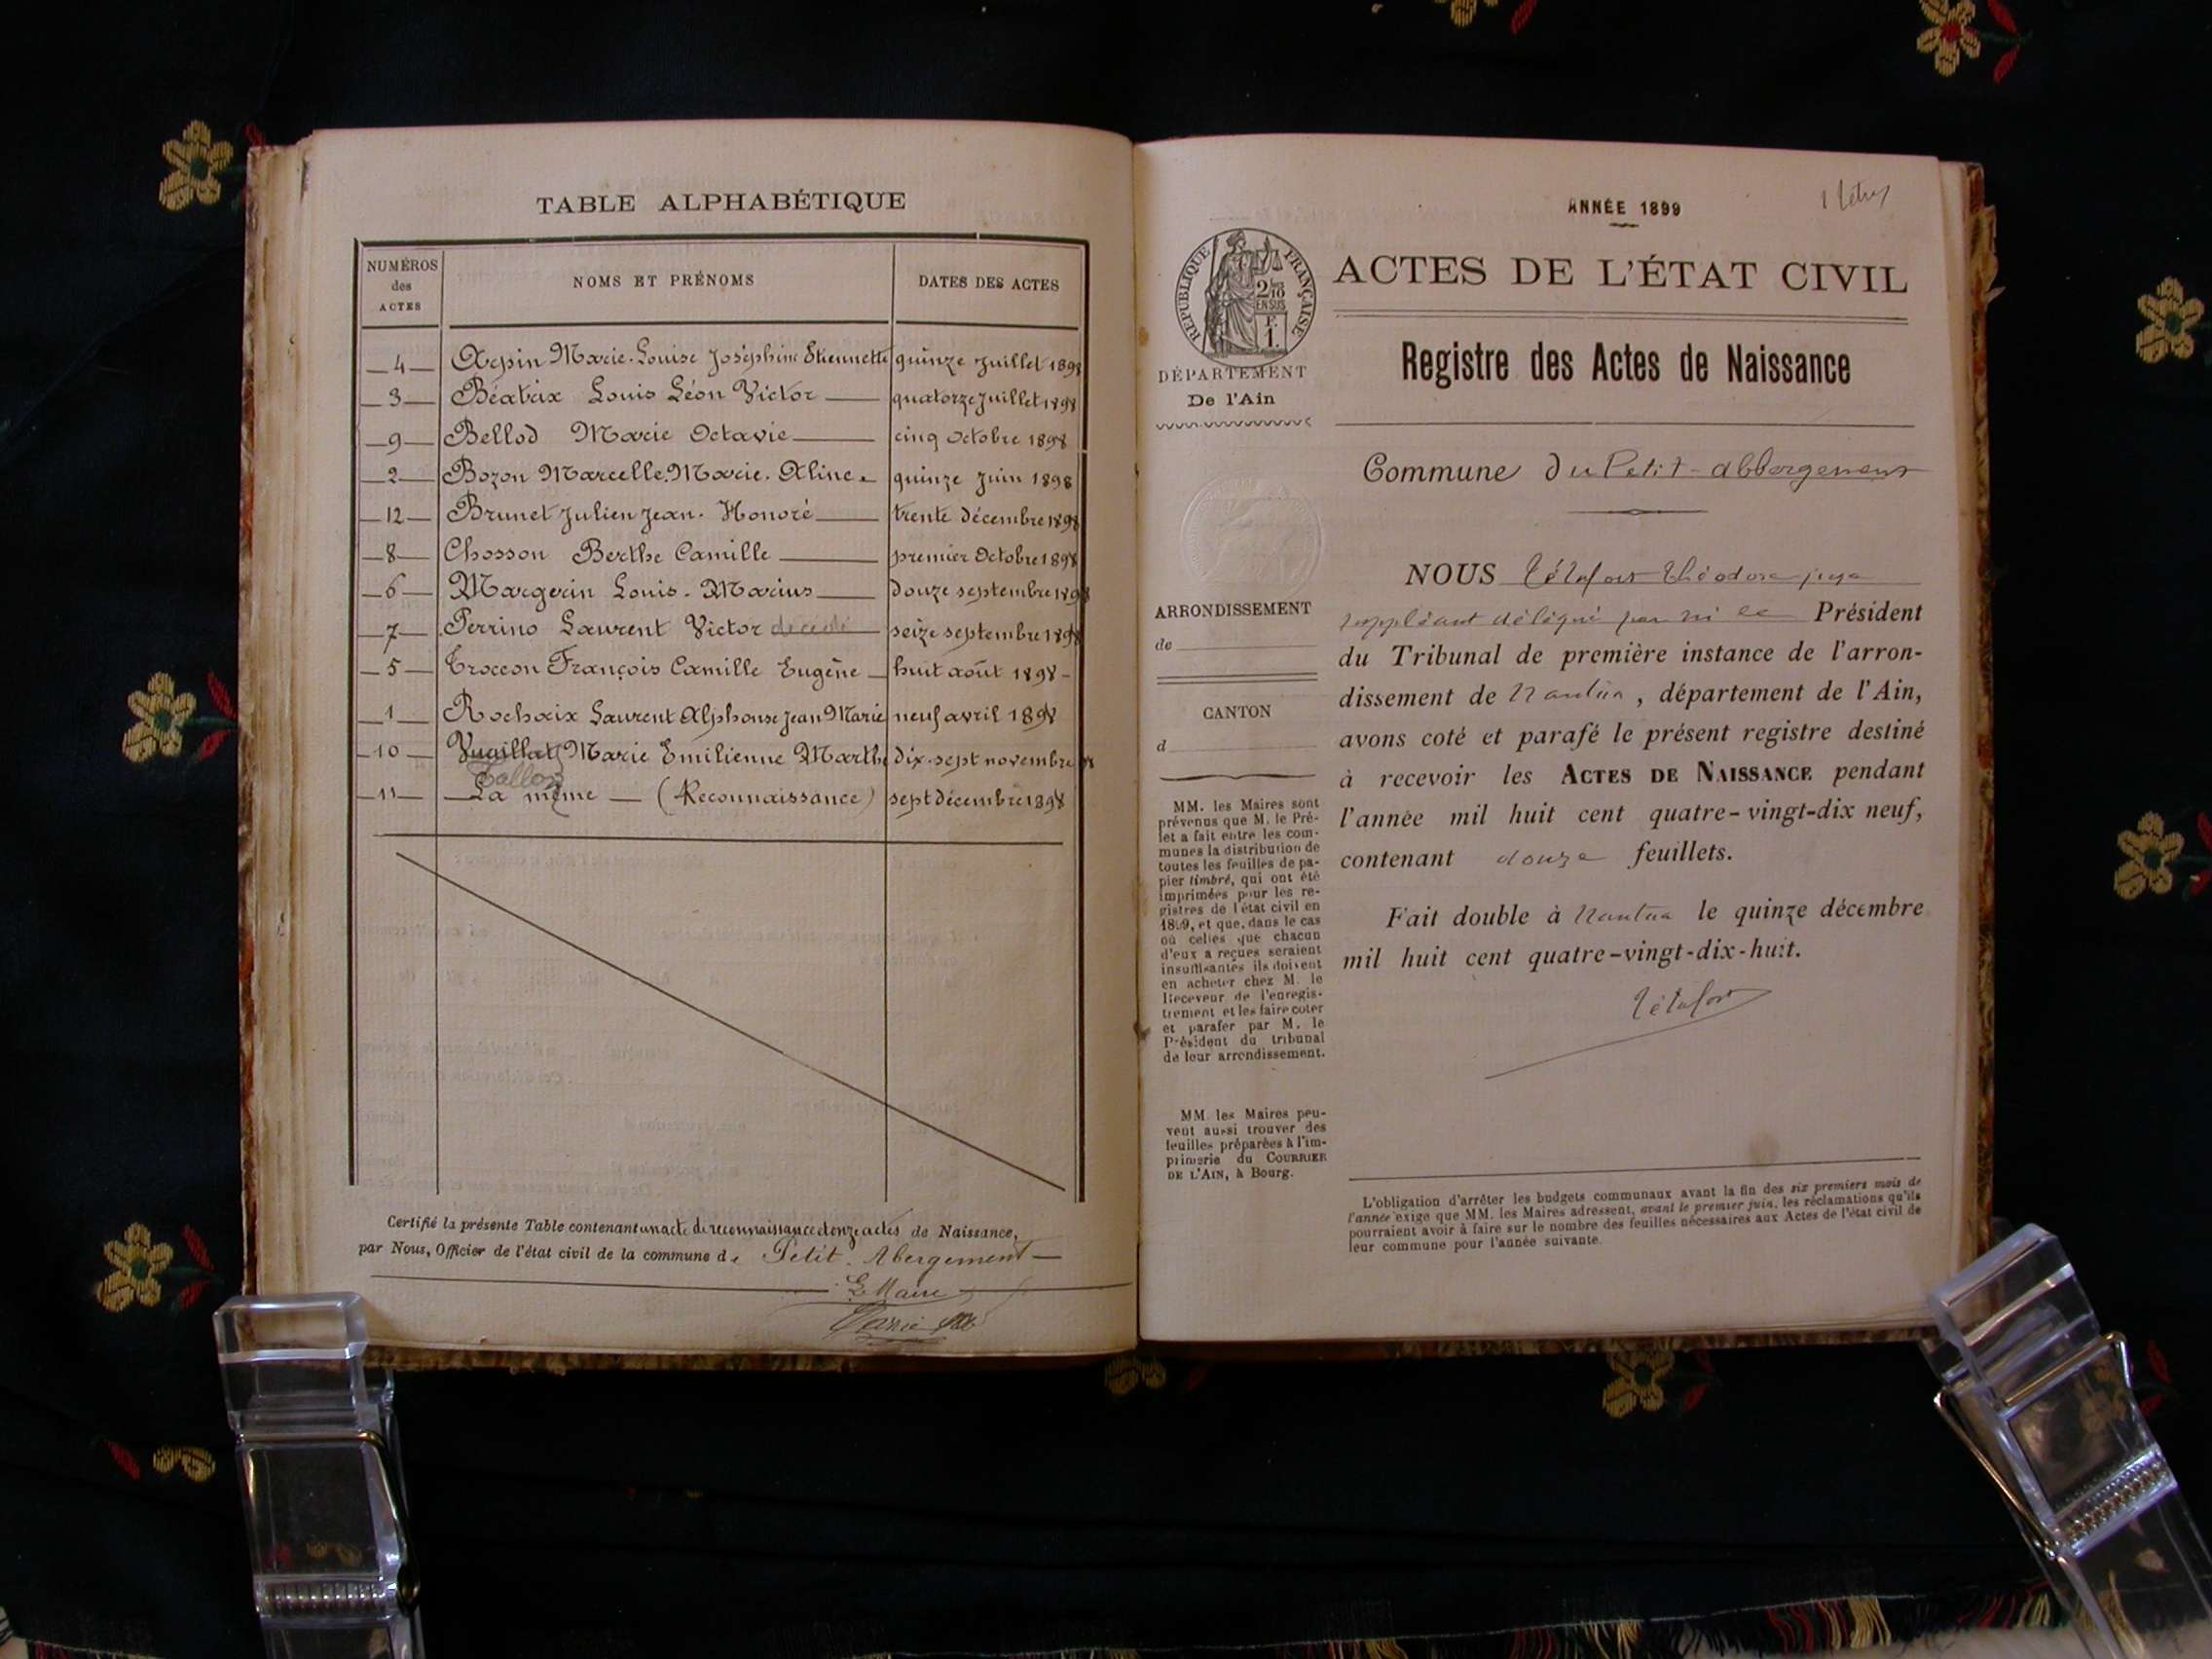 TABLE ALPHABÉTIQUE
NUMÉROS des ACTES
NOMS ET PRÉNOMS
DATES DES ACTES
4 Arpin Marie-Louise Joséphine Etiennette quinze Juillet 1898
3 Béatrix Louis Léon Victor quatorze Juillet 1898
9 Bellod Marie Octavie cinq Octobre 1898
2 Bozon Marcelle. Marie. Aline quinze Juin 1898
12 Brunet Julien Jean. Honoré trente décembre 1898
8 Chosson Berthe Camille premier Octobre 1898
6 Margerin Louis. Marius douze septembre 1898
7 Perrino Laurent Victor decedé seize septembre 1898
5 Troccon François Camille Eugène huit août 1898
1 Rochaix Laurent Alphonse Jean Marie neuf avril 1898
10 Vuaillat Marie Emilienne Marthe dix-sept novembre
Tallon
11 La même (Reconnaissance) sept décembre 1898
Certifié la présente Table contenant un acte de reconnaissance et onze actes de Naissance,
par Nous, Officier de l'état civil de la commune de Petit. Abergement
Le Maire
ANNÉE 1899
RÉPUBLIQUE FRANÇAISE
2/10 EN SUS
F. 1.
DÉPARTEMENT
De l'Ain
ARRONDISSEMENT
de
CANTON
d
MM. les Maires sont
prévenus que M. le Pré-
fet a fait entre les com-
munes la distribution de
toutes les feuilles de pa-
pier timbré, qui ont été
imprimées pour les re-
gistres de l'état civil en
1899, et que, dans le cas
où celles que chacun
d'eux a reçues seraient
insuffisantes ils doivent
en acheter chez M. le
Receveur de l'enregis-
trement et les faire coter
et parafer par M. le
Président du tribunal
de leur arrondissement.
MM. les Maires peu-
vent aussi trouver des
feuilles préparées à l'im-
primerie du COURRIER
DE L'AIN, à Bourg.
ACTES DE L'ÉTAT CIVIL
Registre des Actes de Naissance
Commune du Petit-Abbergement
NOUS Théodore juge
suppléant délégué par ni le Président
du Tribunal de première instance de l'arron-
dissement de Nantua, département de l'Ain,
avons coté et parafé le présent registre destiné
à recevoir les ACTES DE NAISSANCE pendant
l'année mil huit cent quatre-vingt-dix neuf,
contenant douze feuillets.
Fait double à Nantua le quinze décembre
mil huit cent quatre-vingt-dix-huit.
L'obligation d'arrêter les budgets communaux avant la fin des six premiers mois de
l'année exige que MM. les Maires adressent, avant le premier juin, les réclamations qu'ils
pourraient avoir à faire sur le nombre des feuilles nécessaires aux Actes de l'état civil de
leur commune pour l'année suivante.